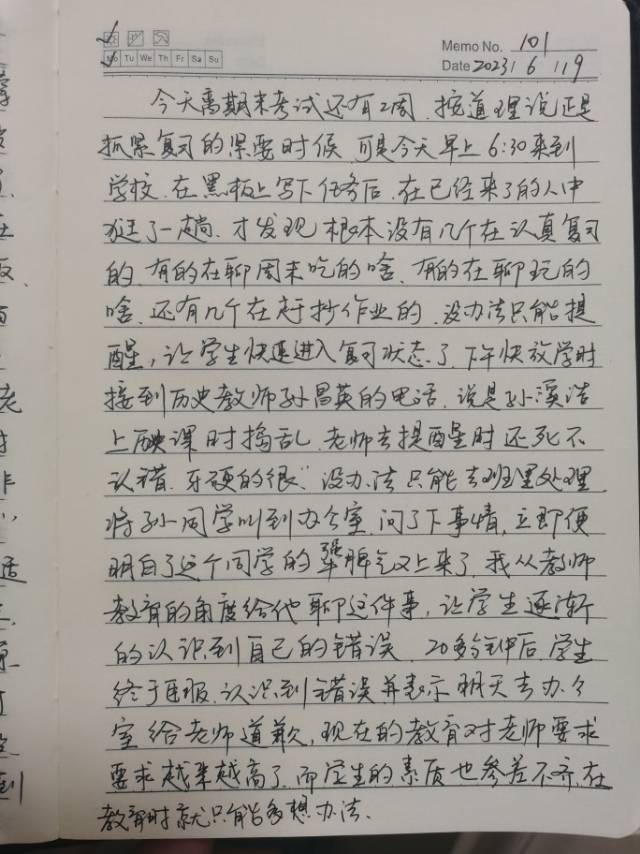 Memo No. 101
Mo Tu We Th Fr Sa Su
Date 2023 / 6 / 19
今天离期末考试还有2周，按道理说正是
抓紧复习的紧要时候，可是今天早上6:30来到
学校，在黑板上写下任务后，在已经来了的人中
逛了一趟，才发现根本没有几个在认真复习
的，有的在聊周末吃的啥，有的在聊玩的
啥，还有几个在赶抄作业的，没办法只能提
醒，让学生快速进入复习状态了，下午快放学时
接到历史教师孙昌英的电话，说是孙溪浩
上课时捣乱，老师去提醒时还死不
认错，牙硬的很"没办法只能去班里处理，
将孙同学叫到办公室，问了下事情，立即便
明白了这个同学的犟脾气又上来了，我从教师
教育的角度给他聊这件事，让学生逐渐
的认识到自己的错误，20多分钟后，学生
终于正服，认识到错误并表示明天去办公
室给老师道歉，现在的教育对老师要求
要求越来越高了，而学生的素质也参差不齐，在
教育时就只能多想办法.